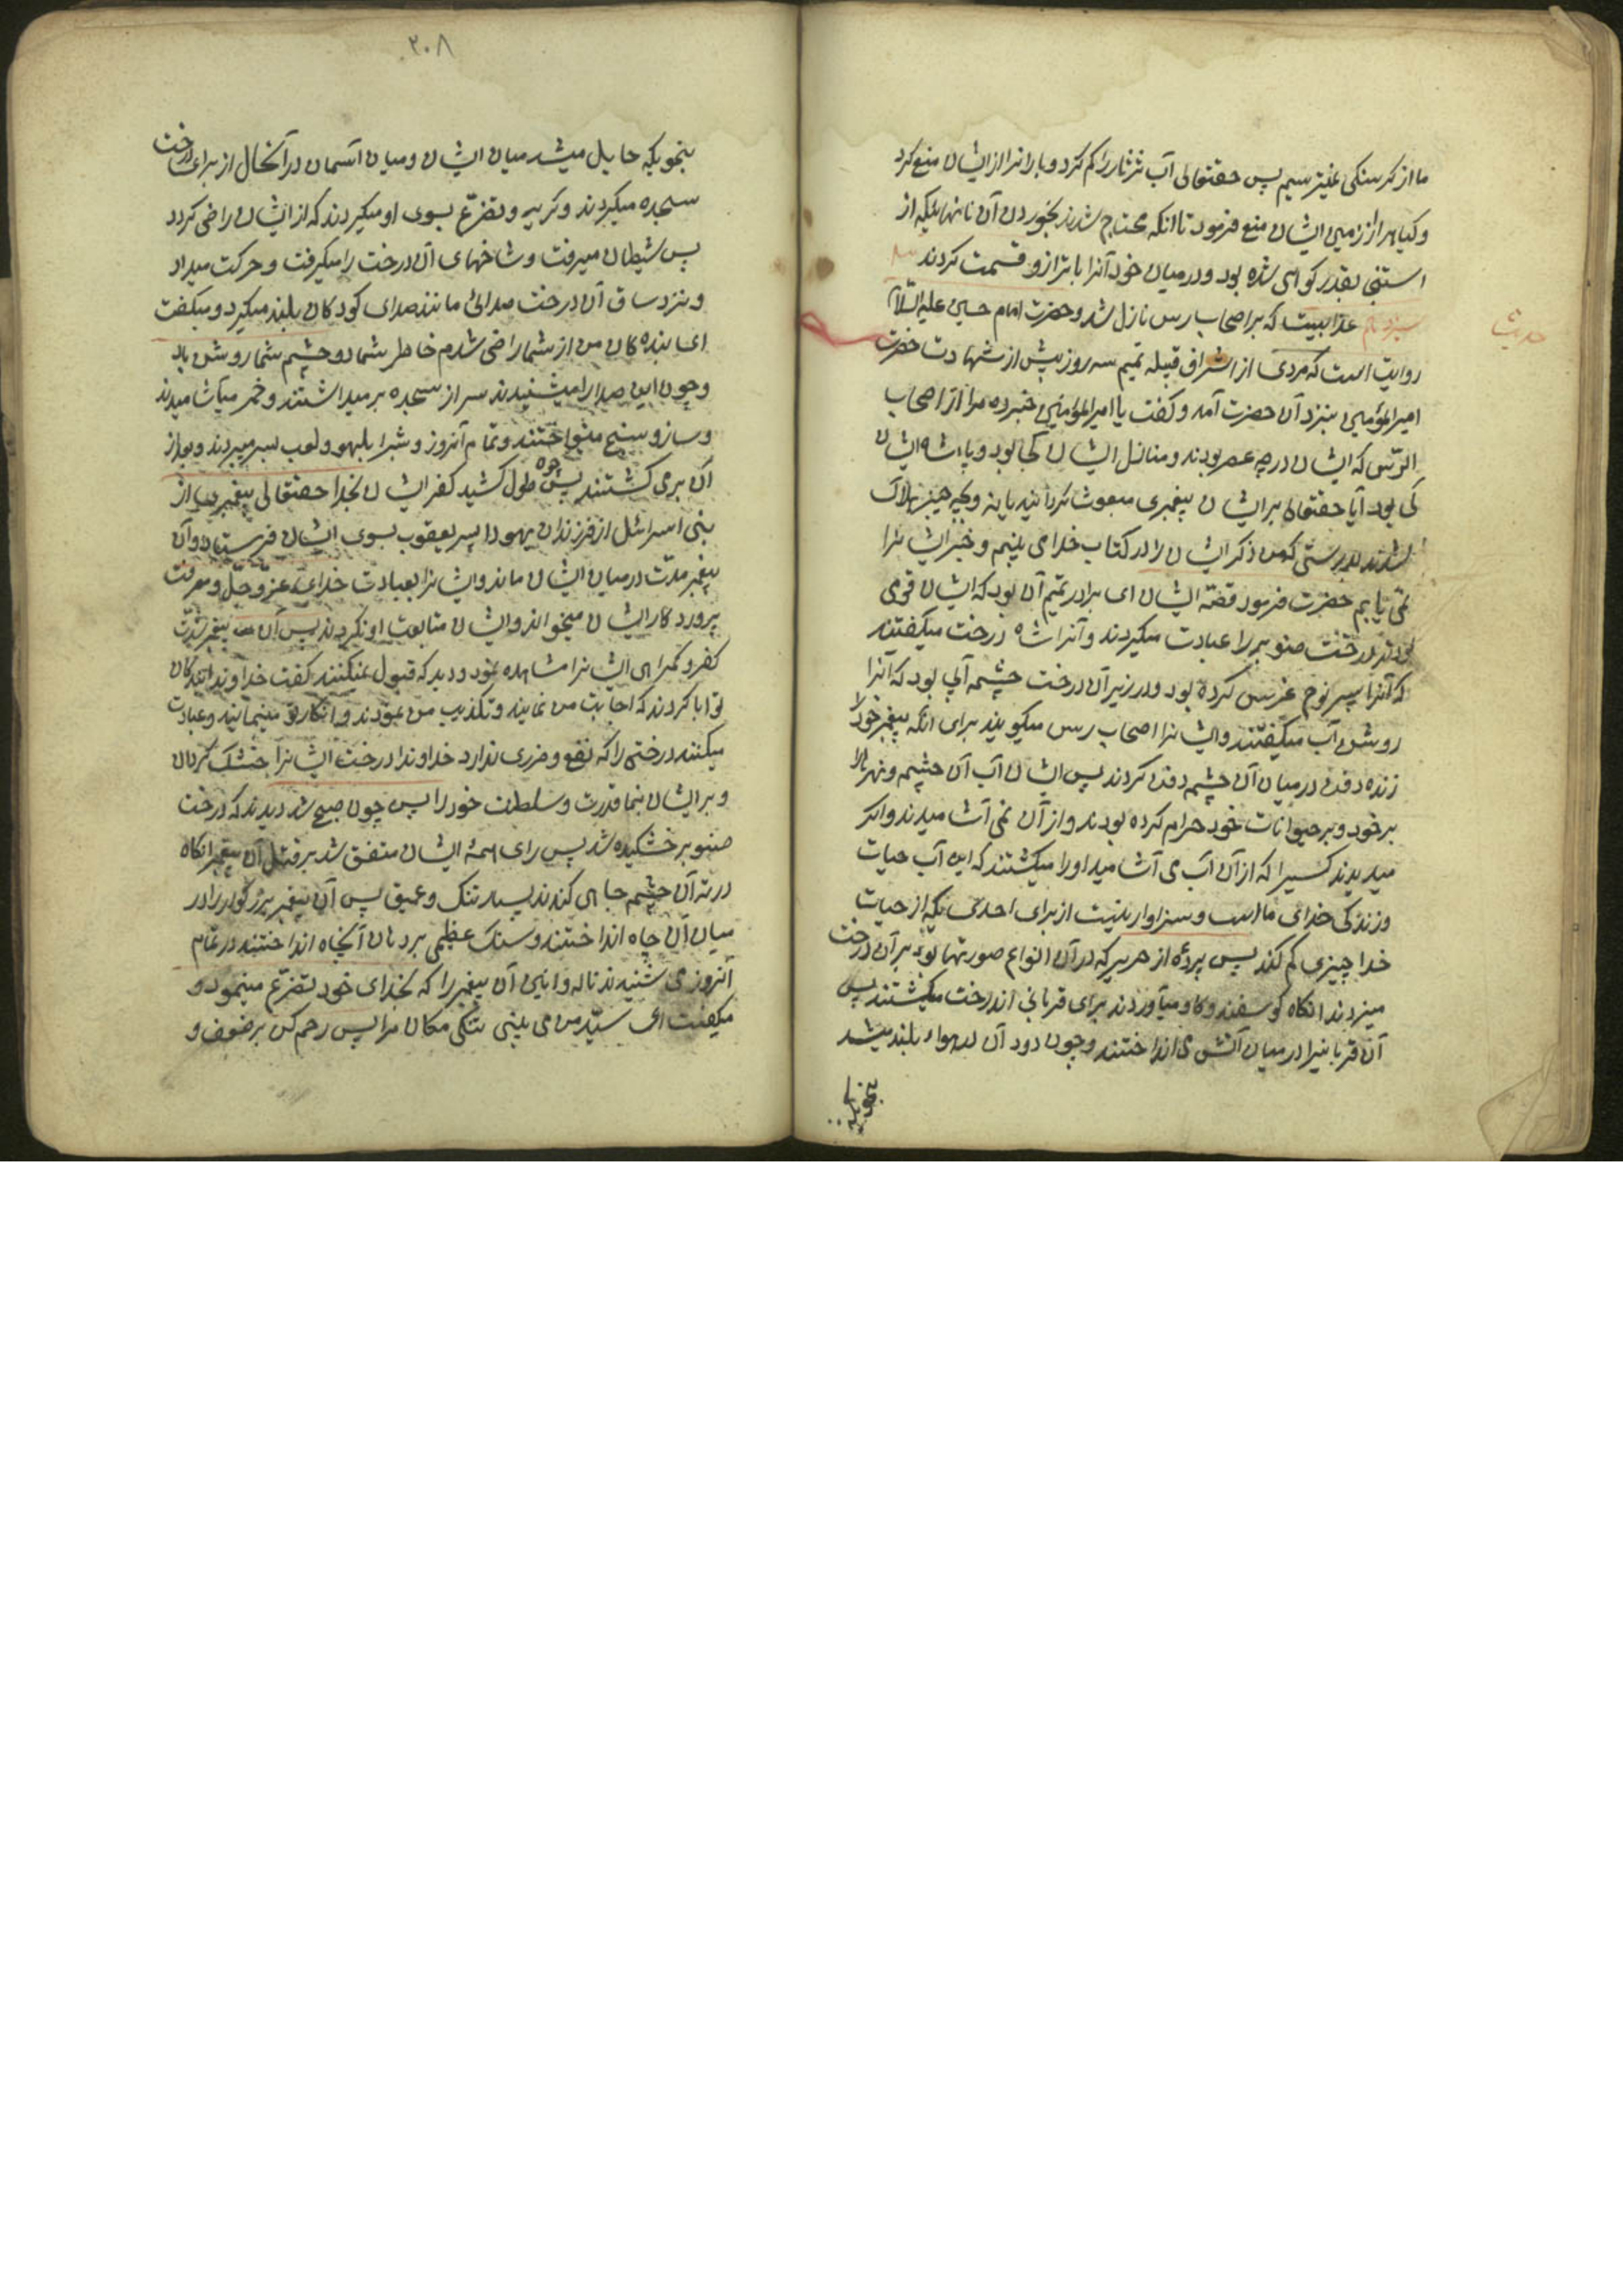 ما از گرسنگی نمیترسیم پس حقتعالی آب ثرثار را کم کرد و بارانرا از ایشان منع کرد
و کیاهرا از زمین ایشان منع فرمود تا انکه محتاج شدند بخوردن آن نانهائیکه از
استنجا بقدر کوهی شده بود و درمیان خود آنرا با ترازو قسمت کردند
سیزدهم عذابیست که بر اصحاب رس نازل شد و حضرت امام حسین علیه السلام
حدیث
روایت است که مردی از اشراف قبیله تمیم سه روز پیش از شهادت حضرت
امیرالمؤمنین بنزد آن حضرت آمد و کفت یا امیرالمؤمنین خبر ده مرا از اصحاب
الرّس که ایشان در چه عصر بودند و منازل ایشان کجا بود و پادشاه ایشان
کی بود آیا حقتعالی بر ایشان پیغمبری مبعوث کردانید یا نه و بچه چیز هلاک
شدند بدرستی که من ذکر ایشان را در کتاب خدا می بینم و خبر ایشانرا
نمی یابم حضرت فرمود قصّه ایشان ای برادر تمیم آن بود که ایشان قومی
بودند درخت صنوبر را عبادت میکردند و آنرا شاه درخت میکفتند
که آنرا پسر نوح غرس کرده بود و در زیر آن درخت چشمه آبی بود که آنرا
روشن آب میکفتند و ایشانرا اصحاب رس میکویند برای انکه پیغمبر خود را
زنده دفن در میان آن چشم دفن کردند پس ایشان آب آن چشم و نهرها را
بر خود و بر حیوانات خود حرام کرده بودند و از آن نمی آشامیدند و اکر
میدیدند کسیرا که از آن آب می آشامید او را میکشتند که این آب حیات
و زندکی خدای ما است و سزاوار نیست از برای احدی که از حیات
خدا چیزی کم کند پس پردهٔ از حریر که در آن انواع صورتها بود بر آن درخت
میزدند انکاه کوسفند و کاو میآوردند برای قربانی اندرخت میکشتند پس
آن قربانیرا در میان آتش می انداختند و چون دود آن در هواء بلند میشد
بنحویکه
۲۰۸
بنحویکه حایل میشد میان ایشان و میان آسمان در آنحال از برای درخت
سجده میکردند و کریه و تضرّع بسوی او میکردند که از ایشان راضی کردد
پس شیطان میرفت و شاخهای آن درخت را میکرفت و حرکت میداد
و نزد ساق آن درخت صدائی مانند صدای کودکان بلند میکرد و میکفت
ای بنده کان من از شما راضی شدم خاطر شما و چشم شما روشن باد
و چون این صدا را میشنیدند سر از سجده بر میداشتند و خمر میآشامیدند
و ساز و سنج مینواختند و تمام آنروز و شبرا بلهو و لعب بسر میبردند و بعد از
آن بر می کشتند پس چون طول کشید کفر ایشان بخدا حقتعالی پیغمبری از
بنی اسرائل از فرزندان یهودا پسر یعقوب بسوی ایشان فرستاد و آن
پیغمبر مدّت در میان ایشان ماند و ایشانرا بعبادت خدای عزّ و جلّ و معرفت
پرورد کار ایشان میخواند و ایشان متابعت او نکردند پس آن پیغمبر شدّت
کفر و کمراهی ایشانرا مشاهده نمود و دید که قبول نمیکنند کفت خداوندا بندکان
تو ابا کردند که اجابت من نمایند و تکذیب من نمودند و انکار تو مینمایند و عبادت
میکنند درختی را که نفع و ضرری ندارد خداوندا درخت ایشانرا خشک کردان
و بر ایشان بنما قدرت و سلطنت خود را پس چون صبح شد دیدند که درخت
صنوبر خشکیده شد پس رای همهٔ ایشان متفق شد بر قتل آن پیغمبر انکاه
در ته آن چشم چاهی کندند بسیار تنک و عمیق پس آن پیغمبر بزرکوار را در
میان آن چاه انداختند و سنک عظیمی بر دهان آنچاه انداختند در تمام
آنروز می شنیدند ناله و انین آن پیغمبر را که بخدای خود تضرّع مینمود و
میکفت ای سیّد من می بینی تنکی مکان مرا پس رحم کن بر ضعف و